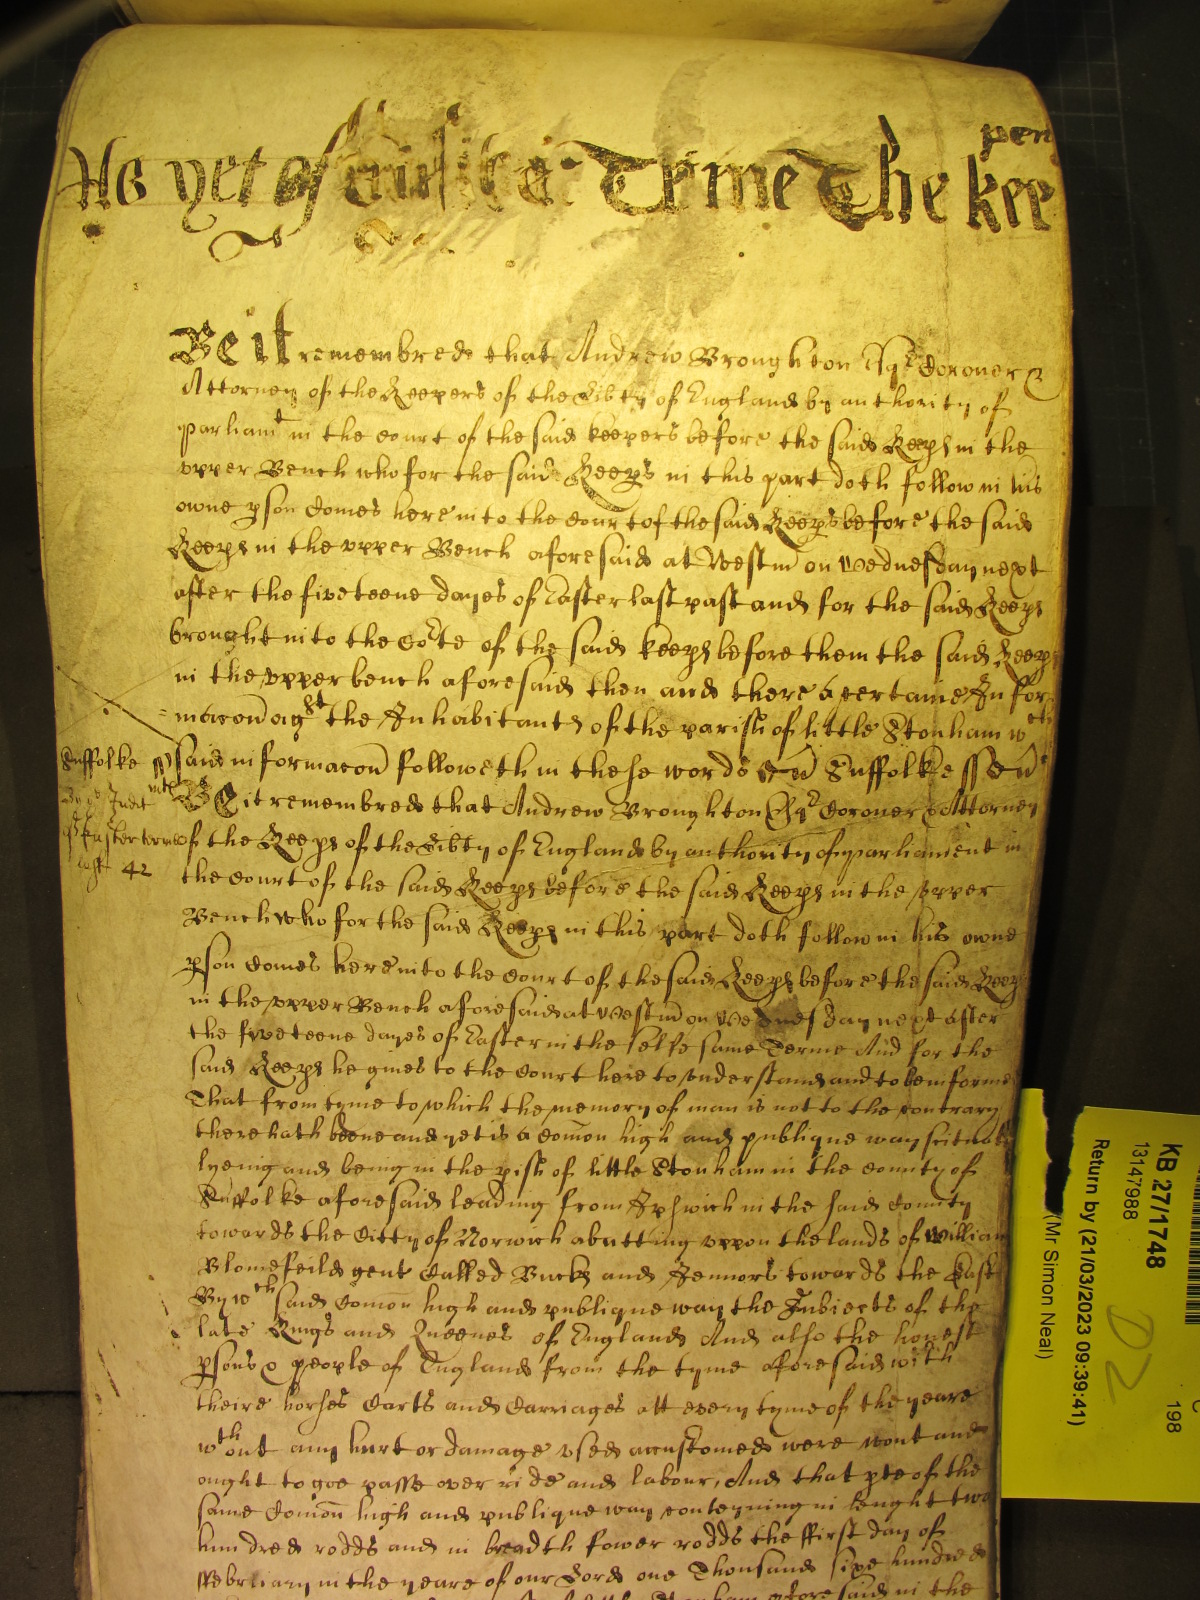 As yet of Terme The kee
pers
Be it remembred that Andrew Broughton Esqr Coroner &
Attorney of the Keepers of the Libty of England by authority of
parliamt in the Court of the said keepers before the said Keeps in the
upper Bench who for the said Keeps in this part doth follow in his
owne pson Comes here into the Court of the said Keeps before the said
Keeps in the upper Bench aforesaid at Westm on Wednesday next
after the fiveteene dayes of Easter last past and for the said Keeps
brought into the Corte of the said keeps before them the said Keeps
in the upper bench aforesaid then and there a certaine Infor
=macon agst the Inhabitants of the parish of little Stonham wch
said informacon followeth in these words Suffolke ss
Suffolke ss
Easter terme
42
BE it remembred that Andrew Broughton Esqr Coroner & Attorney
of the Keeps of the Libty of England by authority of parliament in
the Court of the said Keeps before the said Keeps in the upper
Bench who for the said Keeps in this part doth follow in his owne
pson Comes here into the Court of the said Keeps before the said Keeps
in the upper Bench aforesaid at Westm on Wednesday next after
the fiveteene dayes of Easter in the selfe same Terme And for the
said Keeps he gives to the Court here to understand and to be informed
That from tyme to which the memory of man is not to the contrary
there hath beene and yet is a comon high and publique way scituate
lyeing and being in the pish of little Stonham in the County of
Suffolke aforesaid leading from Ipswich in the said County
towards the Citty of Norwich abutting uppon the lands of William
Blomefeild gent Called Bucks and Jennors towards the East
By wch said Comon high and publique way the Subiects of the
late Kings and Queenes of England And also the honest
psons & people of England from the tyme aforesaid with
theire horses Carts and Carriages att every tyme of the yeare
wthout any hurt or damage used accustomed were wont and
ought to goe passe over ride and labour, And that pte of the
same Comon high and publique way conteyning in lenght two
hundred rodds and in breadth fower rodds the ffirst day of
ffebruary in the yeare of our Lord one Thousand sixe hundred
Stonham aforesaid in the
KB 27/1748
13147988
Return by (21/03/2023 09:39:41)
(Mr Simon Neal)
198
D2